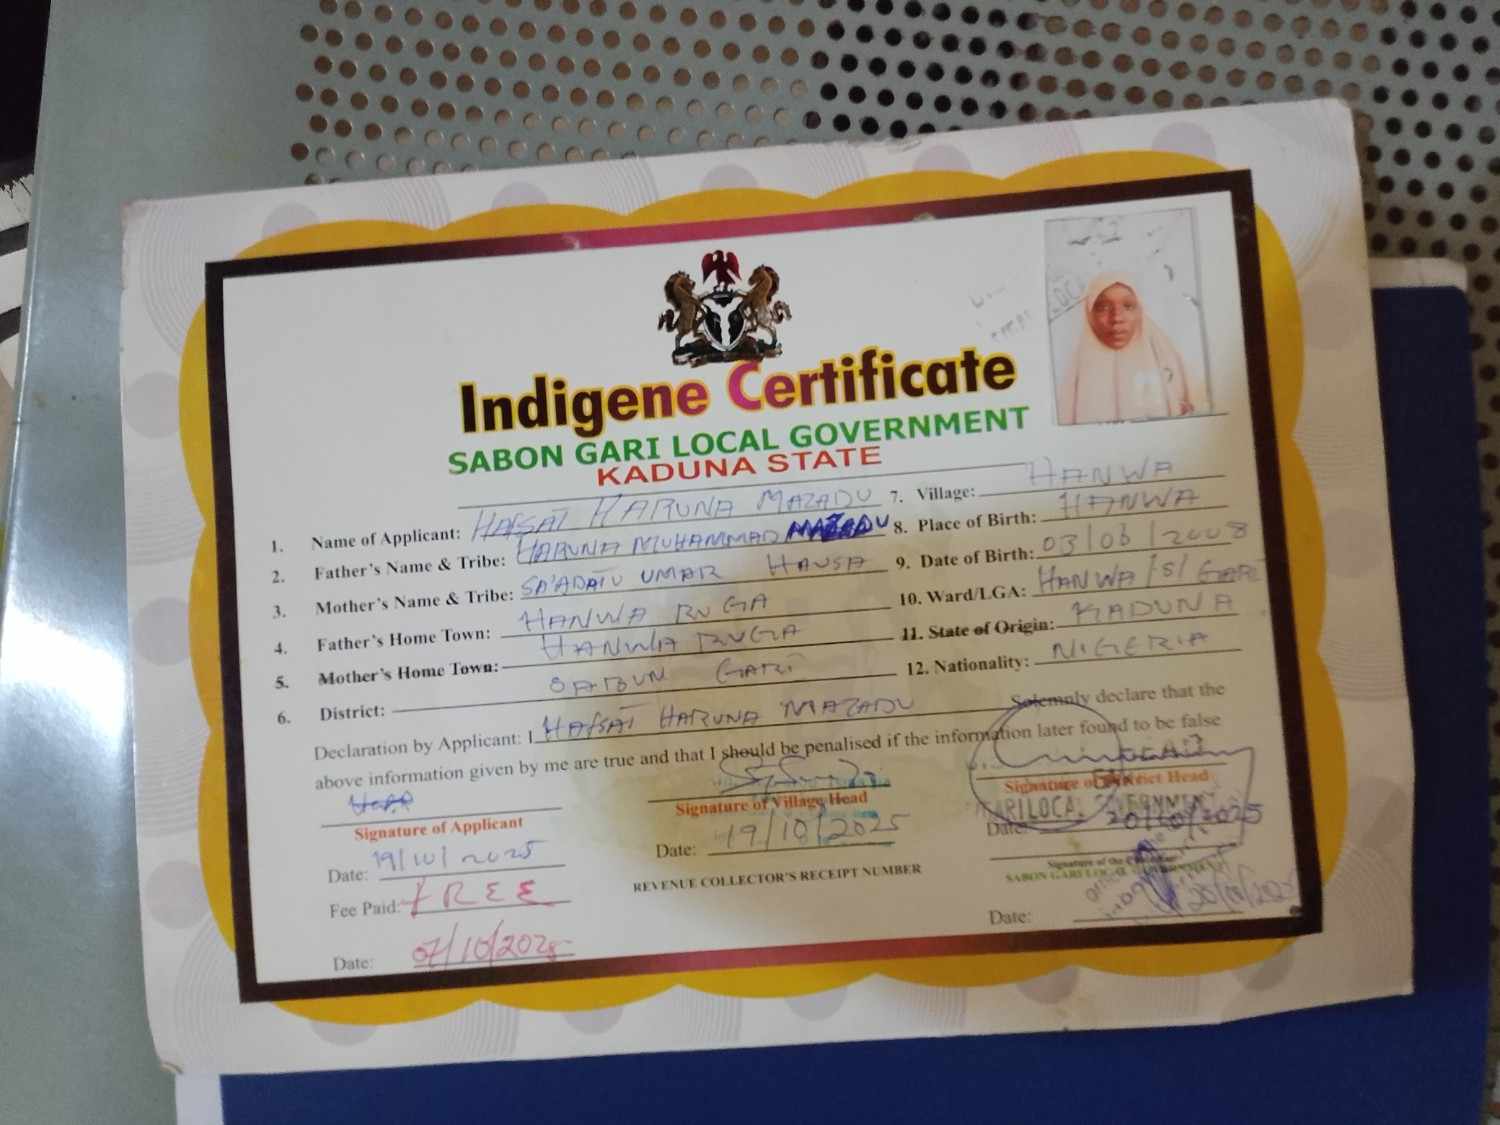 Indigene Certificate
SABON GARI LOCAL GOVERNMENT
KADUNA STATE
1. Name of Applicant: HAFSAT HARUNA MAZADU
2. Father's Name & Tribe: HARUNA MUHAMMAD MAZADU
3. Mother's Name & Tribe: SA'ADATU UMAR HAUSA
4. Father's Home Town: HANWA RUGA
5. Mother's Home Town: HANWA RUGA
6. District: SABUN GARI
7. Village: HANWA
8. Place of Birth: HANWA
9. Date of Birth: 03/06/2008
10. Ward/LGA: HANWA /S/ GARI
11. State of Origin: KADUNA
12. Nationality: NIGERIA
Declaration by Applicant: I HAFSAT HARUNA MAZADU Solemnly declare that the
above information given by me are true and that I should be penalised if the information later found to be false
Signature of Applicant
Date: 19/10/2025
Fee Paid: FREE
Date: 07/10/2025
Signature of Village Head
Date: 19/10/2025
REVENUE COLLECTOR'S RECEIPT NUMBER
Signature of District Head
GARI LOCAL GOVERNMENT
Date: 20/10/2025
Signature of the
SABON GARI LOCAL GOVERNMENT
Date: